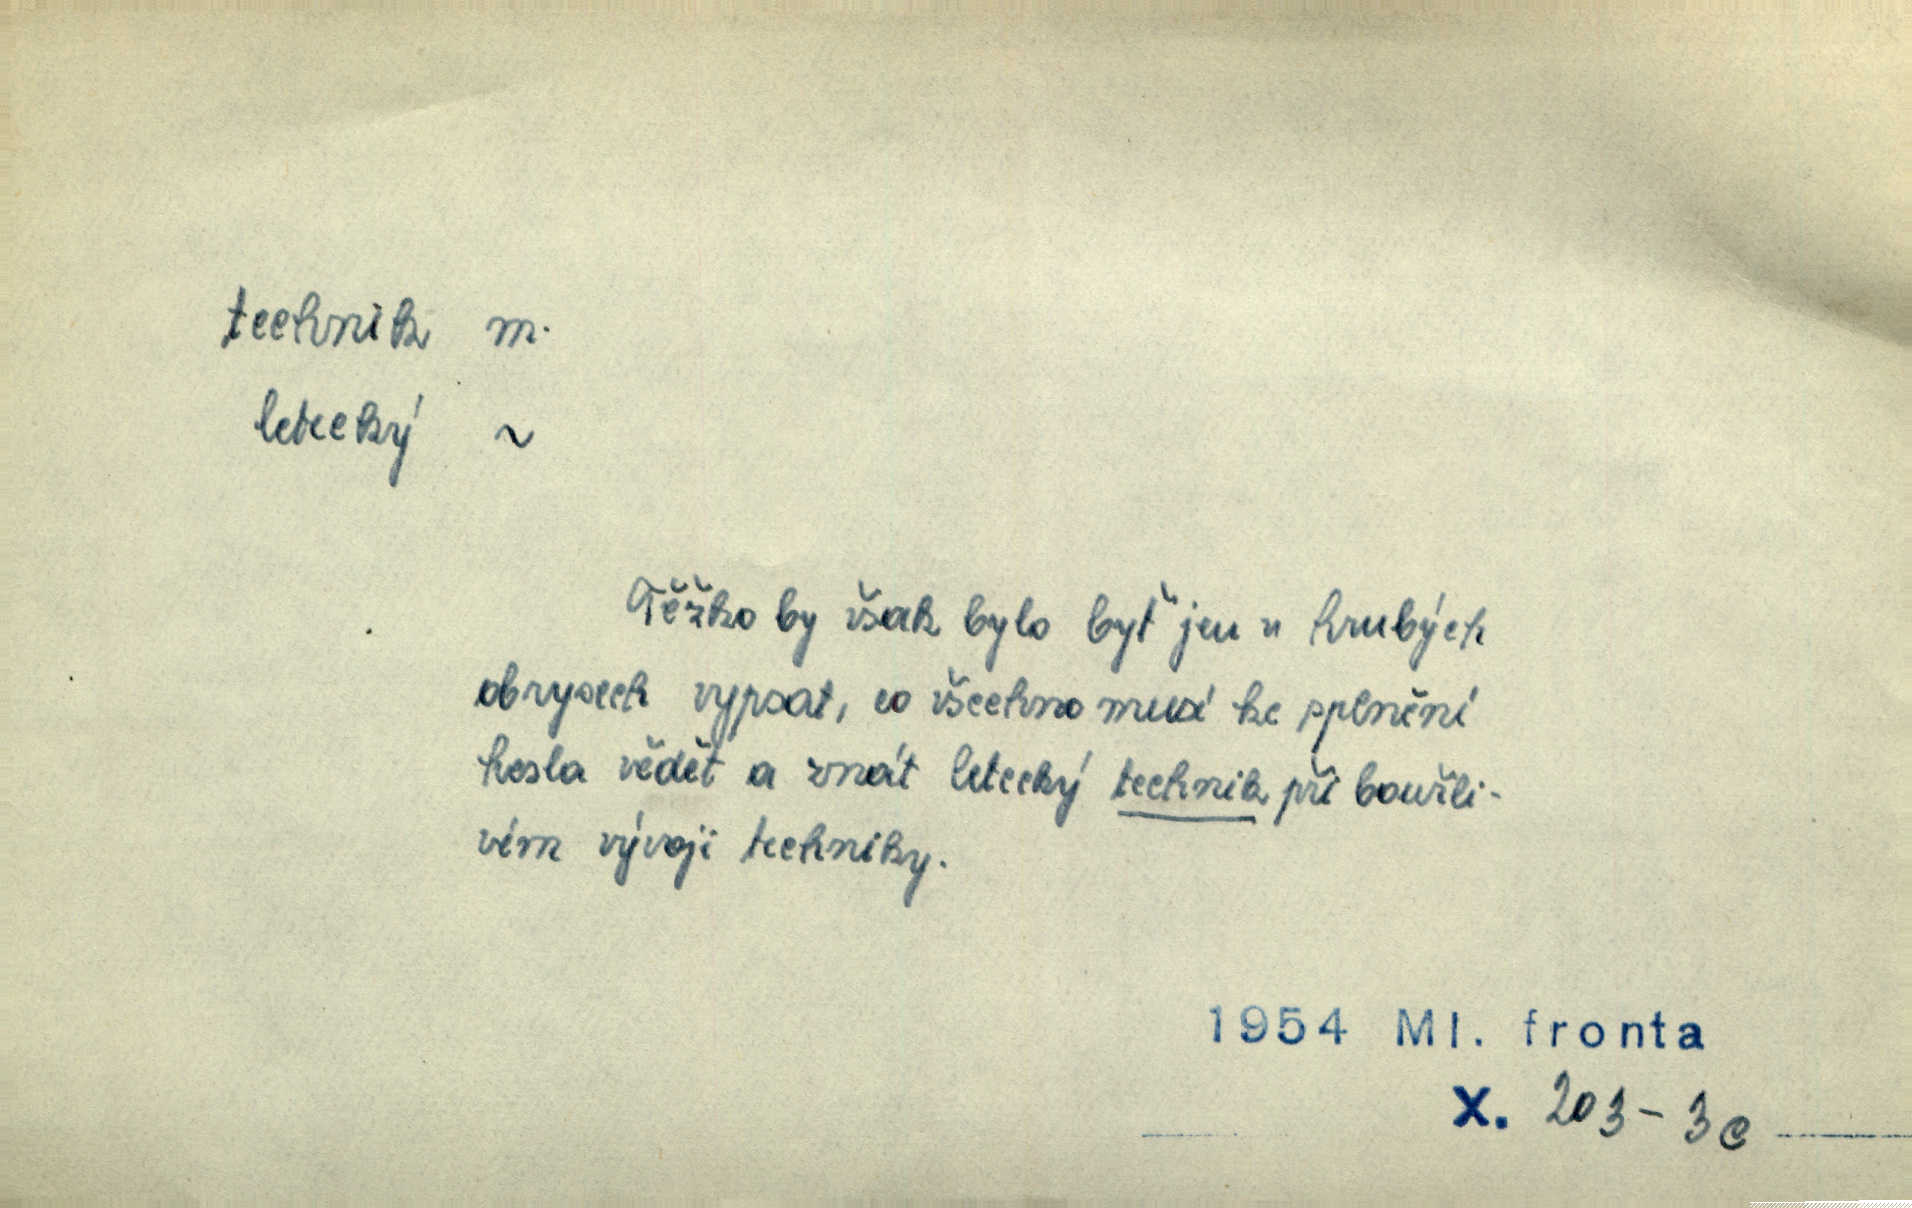 technik m.
letecký ~
Těžko by však bylo byť jen v hrubých
obrysech vypsat, co všechno musí ke splnění
hesla vědět a znát letecký technik při bouřli-
vém vývoji techniky.
1954 Ml. fronta
X. 203 - 3c